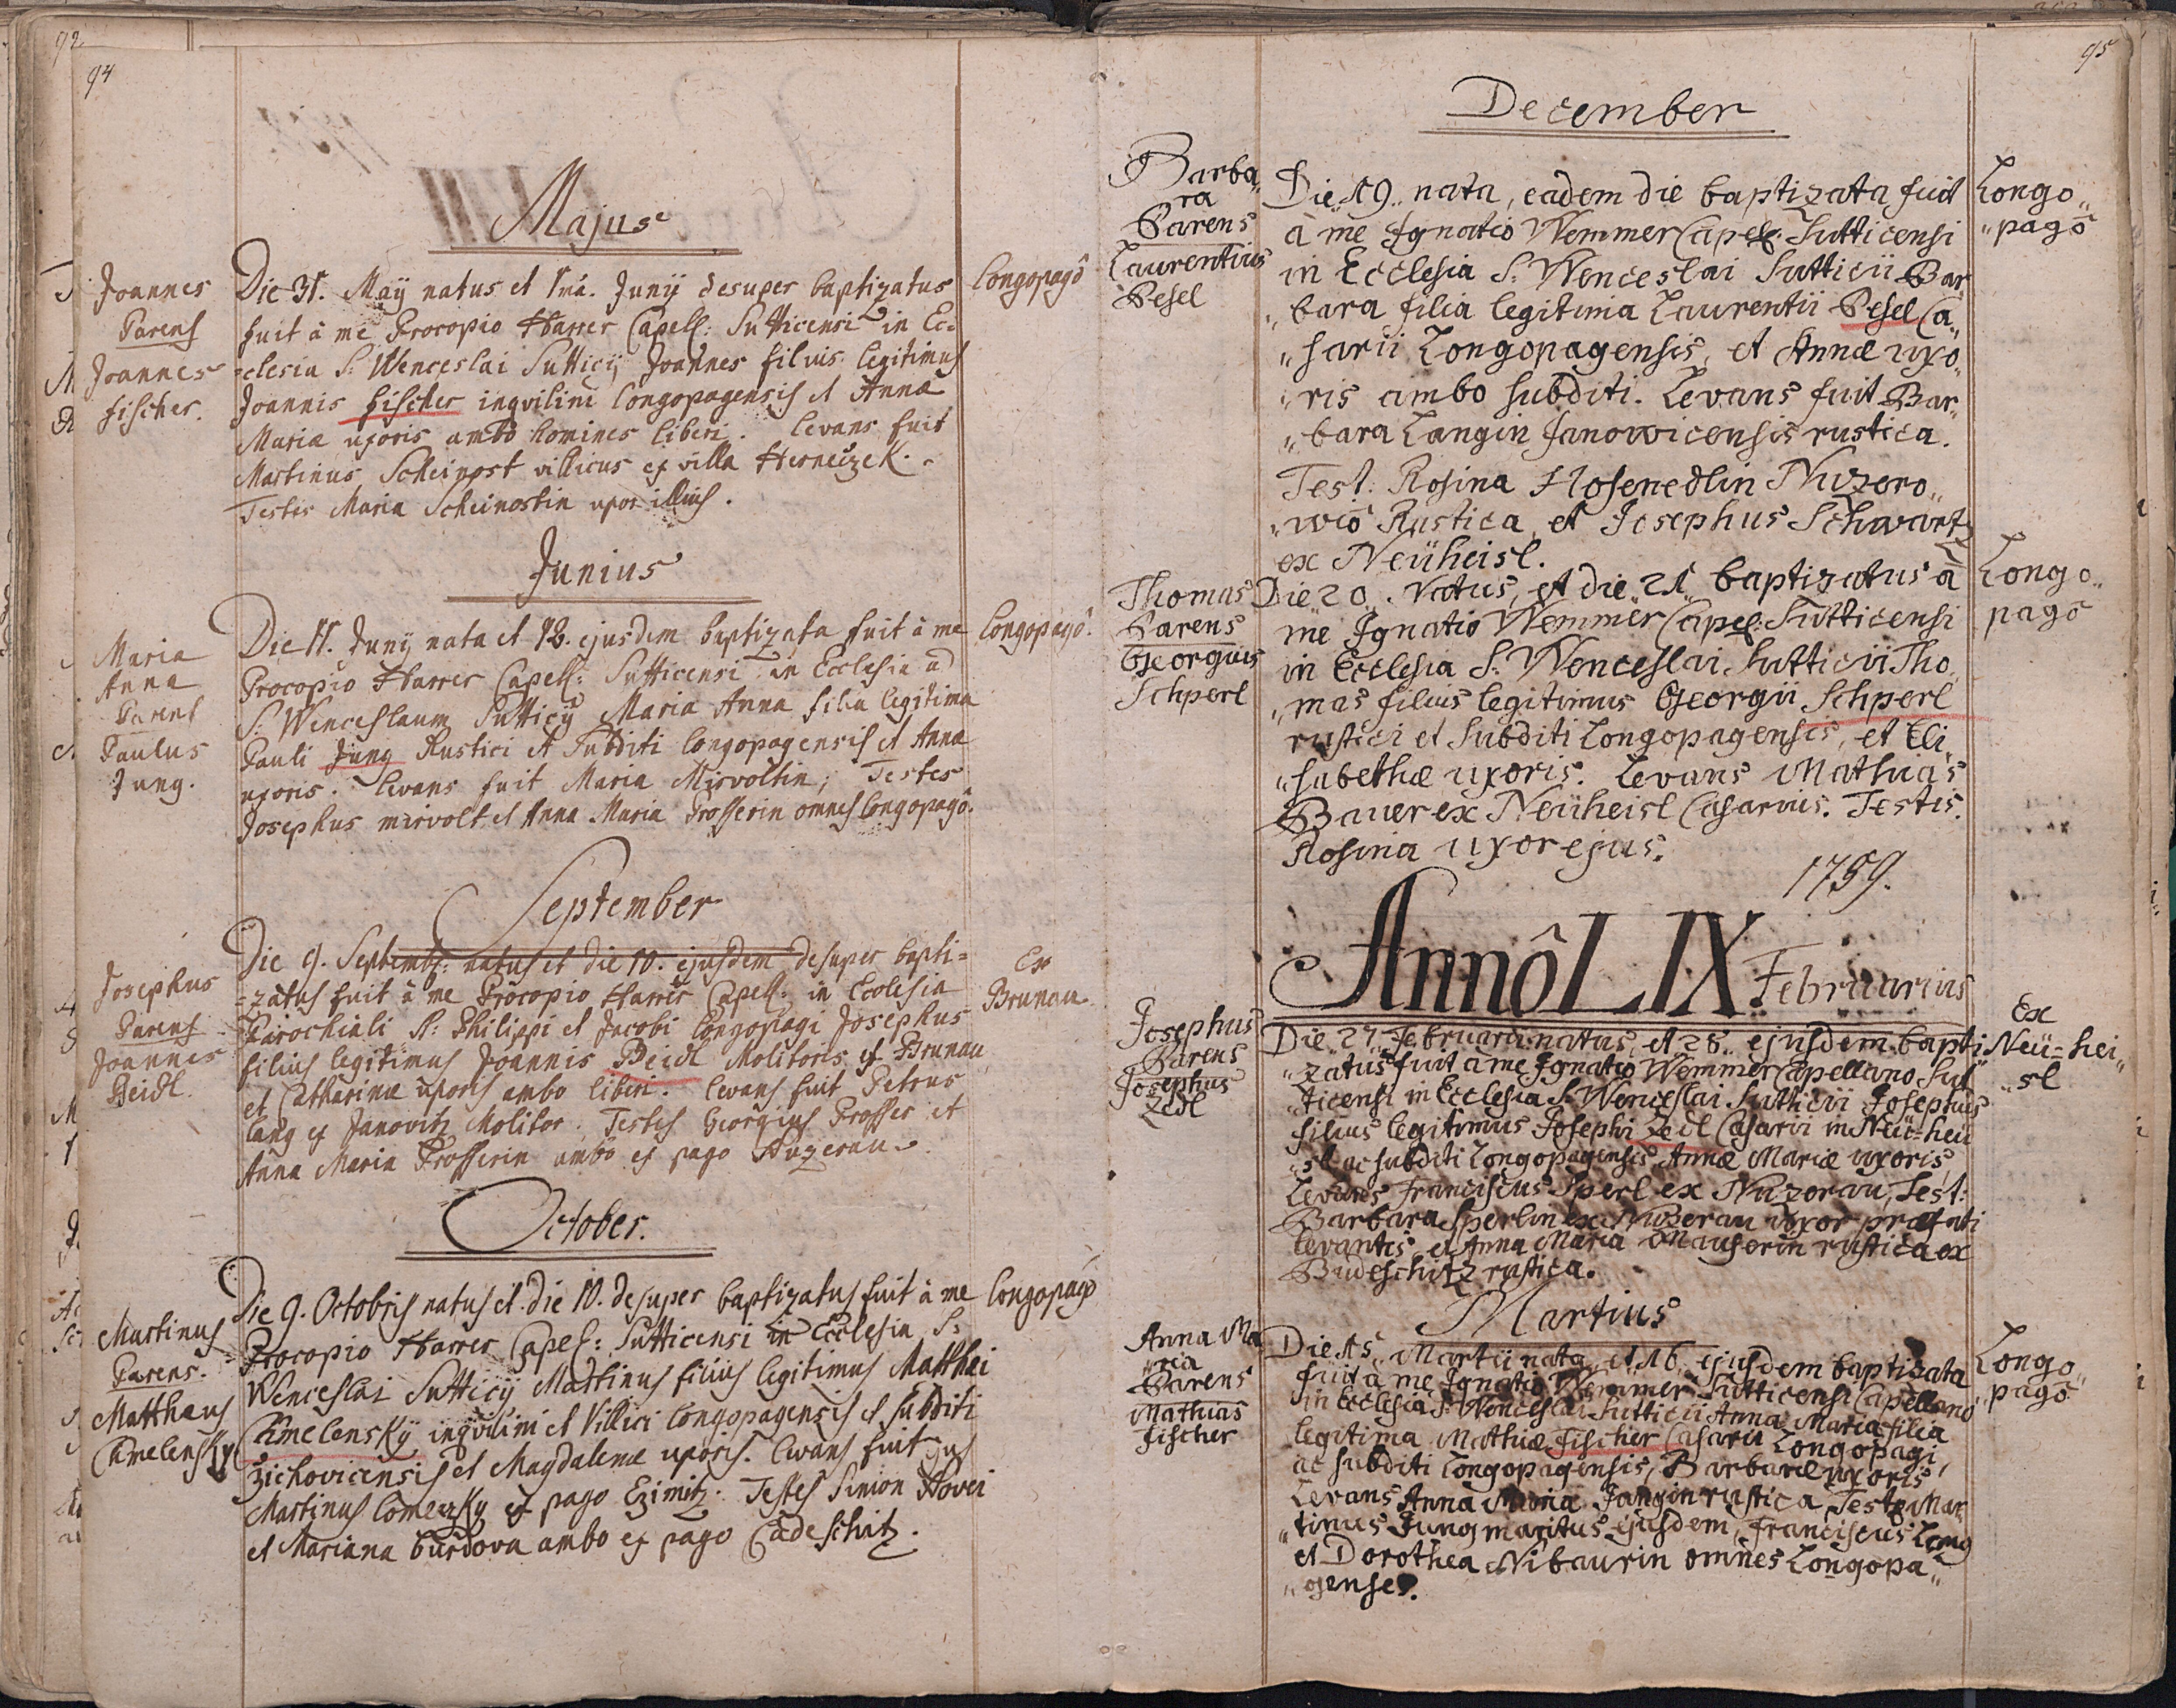 92
94
Majus
Joannes
Parens
Joannes
fischer.
Die 31. Maÿ natus et 1mâ. Junÿ desuper baptizatus
fuit à me Procopio Harrer Capell: Sutticensi in Ec=
=clesia S: Wenceslai Sutticÿ Joannes filius legitimus
Joannis fischer inqvilini Longopagensis et Annæ
Mariæ uxoris ambo homines liberi. Levans fuit
Martinus Scheinost villicus ex villa
Testis Maria Scheinostin uxor illius.
Longopagô
Junius
Maria
Anna
Parens
Paulus
Jung.
Die 11. Junÿ nata et 12. ejusdem baptizata fuit à me
Procopio Harrer Capell: Sutticensi in Ecclesia ad
S. Wenceslaum Sutticÿ Maria Anna filia legitima
Pauli Jung Rustici et Subditi Longopagensis et Annæ
uxoris. Levans fuit Maria Mirvoltin; Testes
Josephus mirvolt et Anna Maria Prosserin omnes Longopagô.
Longopagô.
September
Josephus
Parens
Joannes
Beidl.
Die 9. Septembr: natus et die 10. ejusdem desuper bapti=
=zatus fuit à me Procopio Harrer Capell: in Ecclesia
Parochiali S: Philippi et Jacobi Longopagi Josephus
filius legitimus Joannis Beidl Molitoris ex Brunau
et Catharinæ uxoris ambo liberi. Levans fuit Petrus
Lang ex Janovitz Molitor. Testes Georgius Prosser et
Anna Maria Prosserin ambo ex pago Nuzerau.
Ex
Brunau
October.
Martinus
Parens.
Matthæus
Camelensky
Die 9. Octobris natus et die 10. desuper baptizatus fuit à me
Procopio Harrer Capel: Sutticensi in Ecclesia S:
Wenceslai Sutticÿ Martinus filius legitimus Matthæi
Camelensky inqvilini et Villici Longopagensis et Subditi
Zichovicensis et Magdalenæ uxoris. Levans fuit
Martinus ex pago Testes Simon
et Mariana ambo ex pago
Longopagô
95
December
Barba„
ra
Parens
Laurentius
Pesel
Die 19. nata, eadem die baptizata fuit
à me Ignatio Wemmer Capel: Sutticensi
in Ecclesia S: Wenceslai Sutticii Bar„
„bara filia legitima Laurentii Pesel Ca„
„sarii Longopagensis, et Annæ uxo„
„ris ambo subditi. Levans fuit Bar„
„bara Langin Janowicensis rustica.
Test: Rosina Hosenedlin Nuzero„
„wiô Rustica, et Josephus Schwartz
ex Neüheisl.
Longo„
„pagô
Thomas
Parens
Georgius
Schperl
Die 20. Natus, et die 21 baptizatus à
me Ignatio Wemmer Capel: Sutticensi
in Ecclesia S: Wenceslai Sutticii Tho„
„mas filius legitimus Georgii Schperl
rustici et Subditi Longopagensis, et Eli„
„sabethæ uxoris. Levans Mathias
Bauer ex Neüheisl Casarius. Testis.
Rosina uxor ejus.
Longo„
pagô
1759.
Annô LIX
Februarius
Josephus
Parens
Josephus
Zedl
Die 27 Februarii natus, et 28 ejusdem bapti„
„zatus fuit à me Ignatio Wemmer Capellano Sut„
„ticensi in Ecclesia S: Wenceslai Sutticii Josephus
filius legitimus Josephi Zedl Casarii in Neü=hei„
„sl ac subditi Longopagensis, Annæ Mariæ uxoris,
Levans Franciscus Sperl ex Nuzerau, Test:
Barbara Sperlin ex Nuzerau uxor præfati
levantis, et Anna Maria Mauserin rustica ex
Budeschitz rustica.
Ex
Neü=hei„
„sl
Martius
Anna Ma„
„ria
Parens
Mathias
Fischer
Die 15 Martii nata, et 16 ejusdem baptizata
fuit à me Ignatio Wemmer Sutticensi Capellano
in Ecclesia S: Wenceslai Sutticii Anna Maria filia
legitima Mathiæ Fischer Casarii Longopagi,
ac subditi Longopagensis, Barbaræ uxoris,
Levans Anna Maria Jungin rustica Testes Mar„
„tinus Jung maritus ejusdem, Franciscus Lang
et Dorothea Nibaurin omnes Longopa„
„genses.
Longo„
„pagô